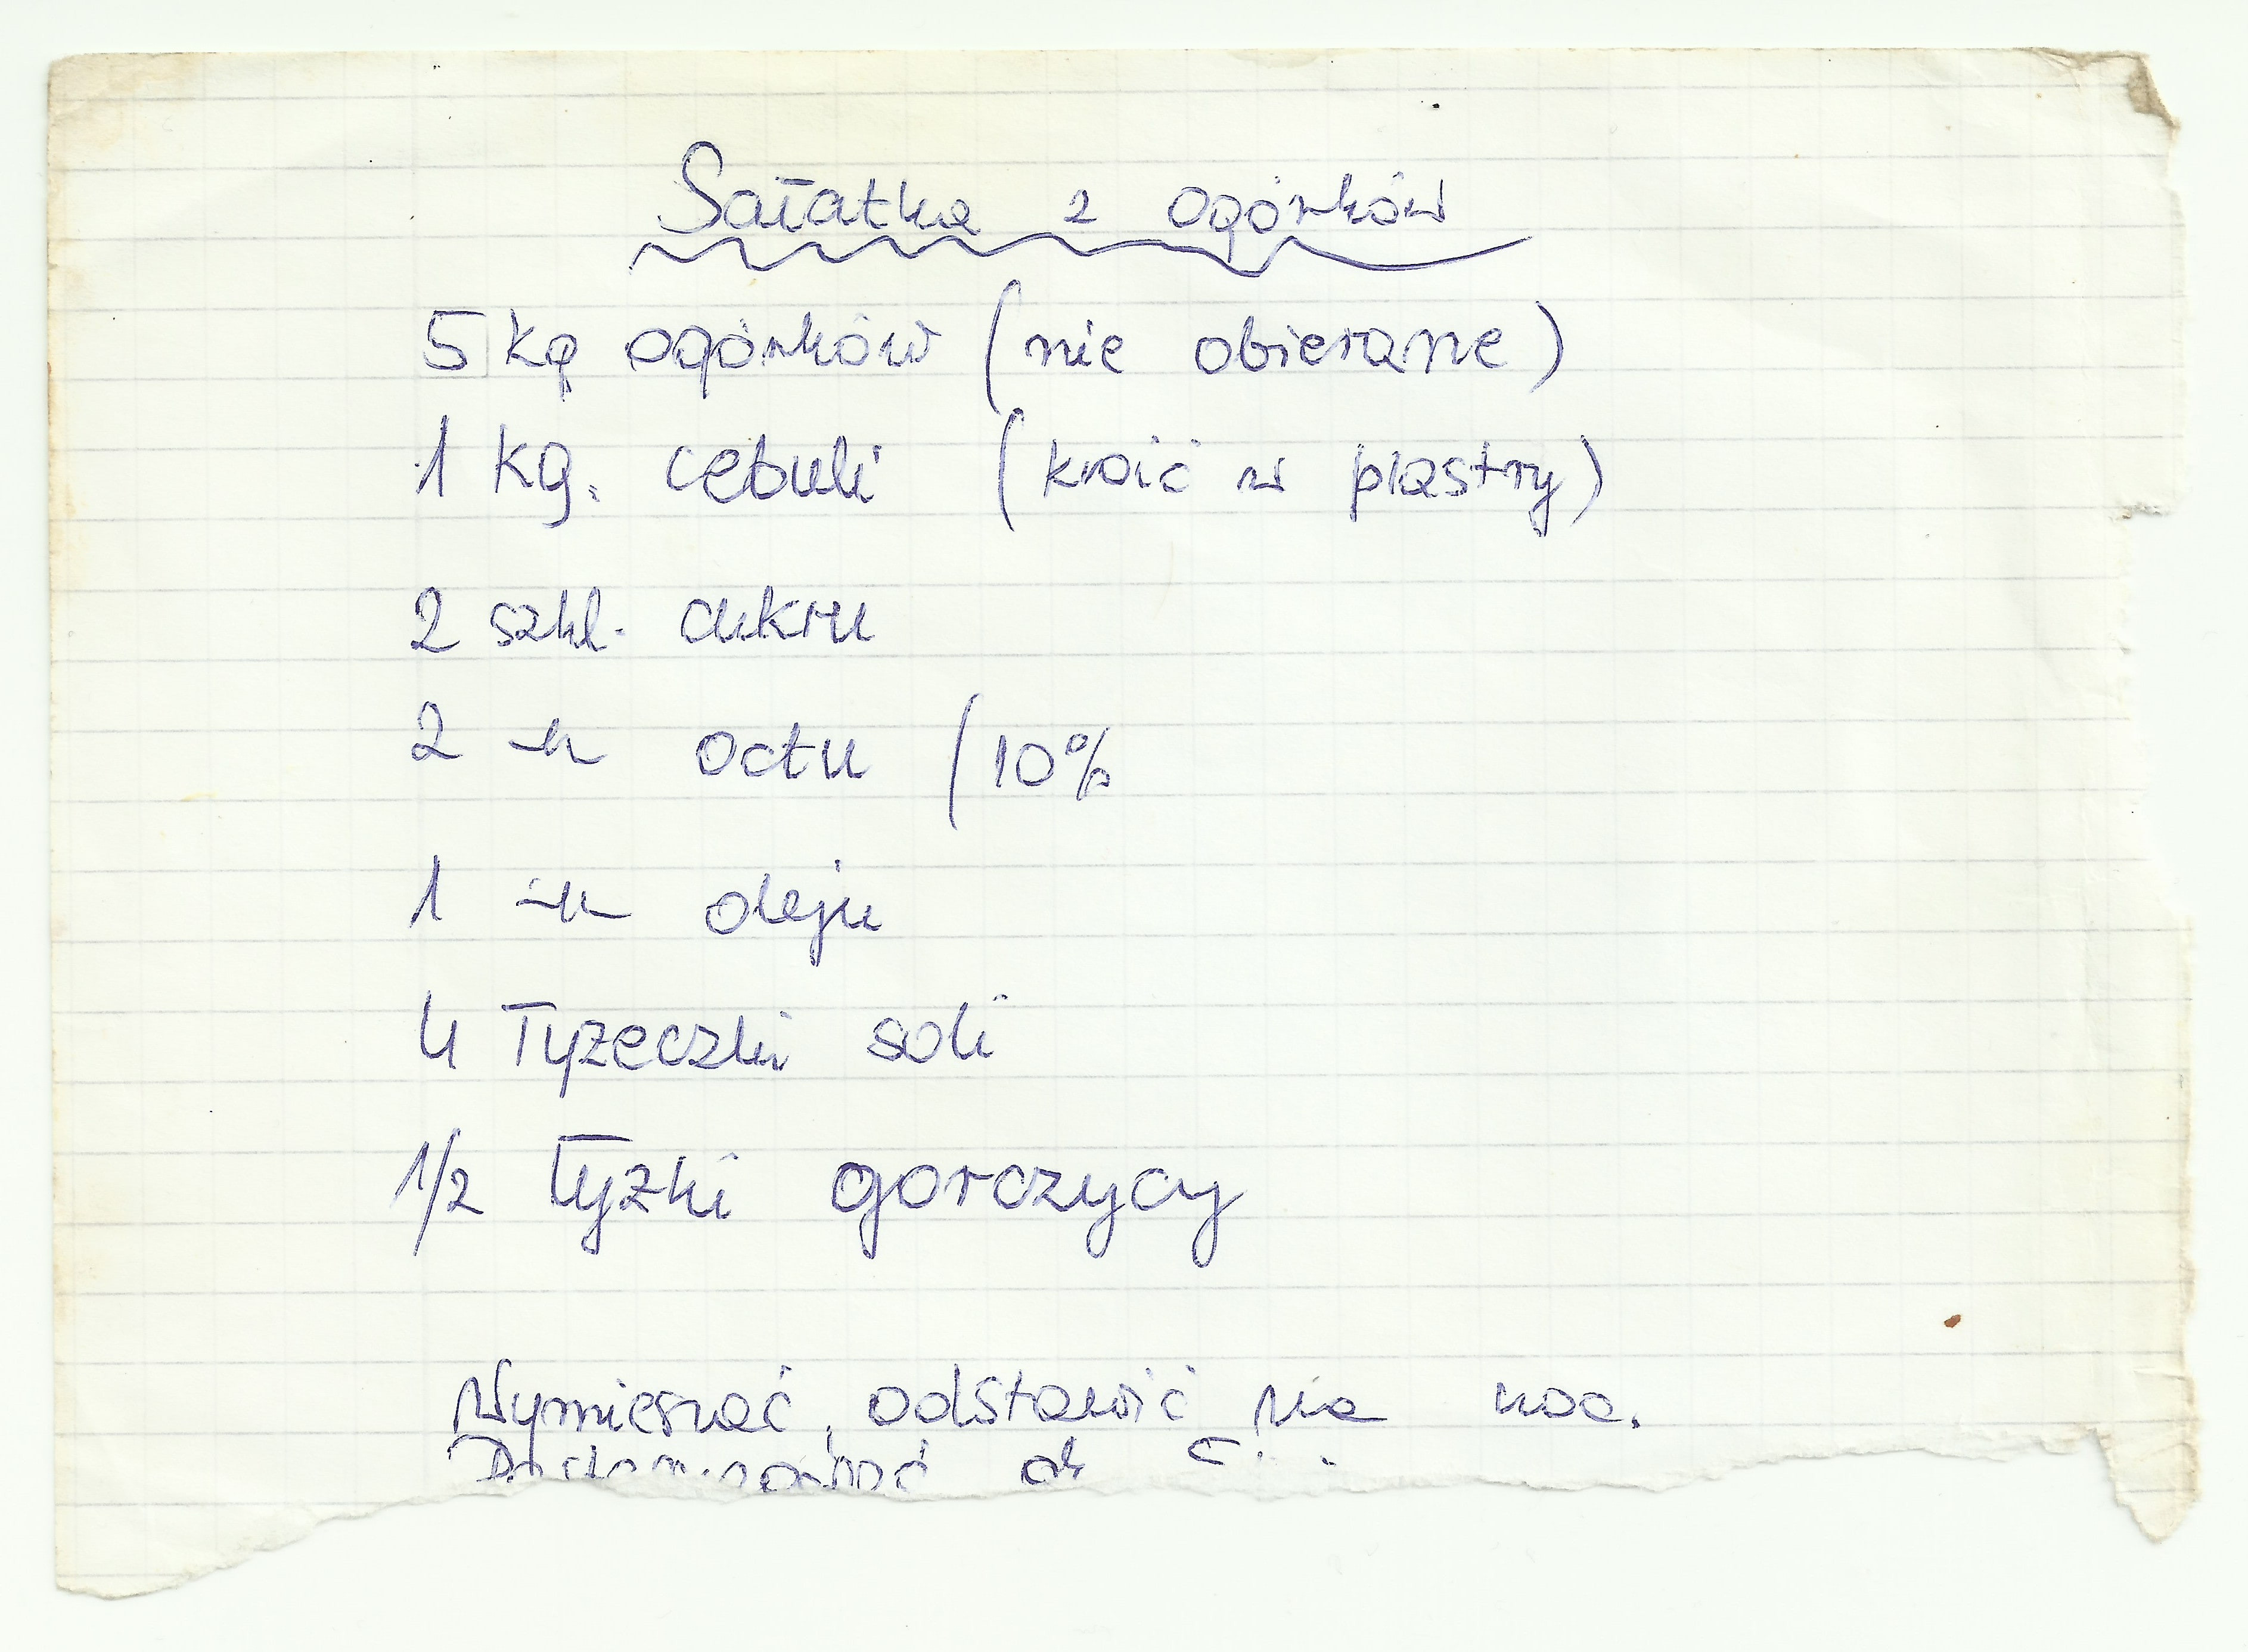 Sałatka z ogórków
5 kg ogórków (nie obierane)
1 kg. cebuli (kroić w plastry)
2 szkl. cukru
2 -"- octu (10%
1 -"- oleju
4 łyżeczki soli
1/2 łyżki gorczycy
Wymieszać, odstawić na noc.
Pasteryzować ok 5